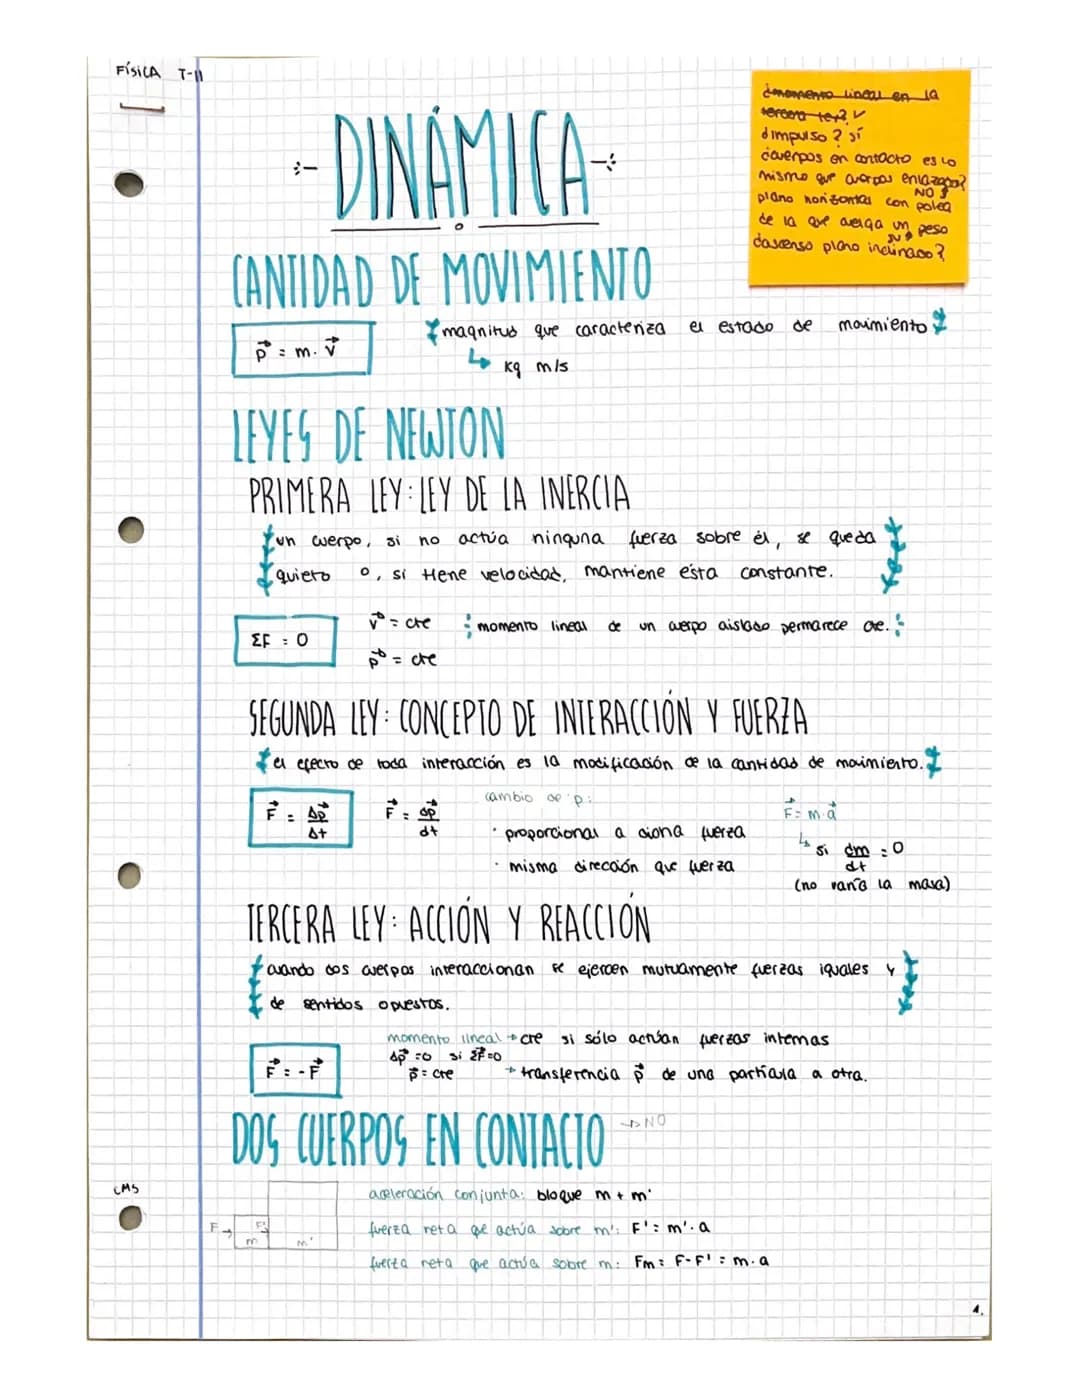 FÍSICA T-11
¿momento lineal en la
tercera ley? ✓
¿impulso? sí
¿cuerpos en contacto es lo
mismo que cuerpos enlazados?
NO
plano horizontal con polea
de la que cuelga un peso
¿descenso plano inclinado?
DINÁMICA
CANTIDAD DE MOVIMIENTO
magnitud que caracteriza el estado de movimiento
p⃗ = m · v⃗
↳ kg m/s
LEYES DE NEWTON
PRIMERA LEY: LEY DE LA INERCIA
un cuerpo, si no actúa ninguna fuerza sobre él, se queda
quieto o, si tiene velocidad, mantiene ésta constante.
ΣF = 0
v⃗ = cte
momento lineal de un cuerpo aislado permanece cte.
p⃗ = cte
SEGUNDA LEY: CONCEPTO DE INTERACCIÓN Y FUERZA
el efecto de toda interacción es la modificación de la cantidad de movimiento.
F⃗ = Δp⃗/Δt
F⃗ = dp⃗/dt
cambio de p:
· proporcional a dicha fuerza
· misma dirección que fuerza
F⃗ = m·a⃗
↳ si dm/dt = 0
(no varía la masa)
TERCERA LEY: ACCIÓN Y REACCIÓN
cuando dos cuerpos interaccionan se ejercen mutuamente fuerzas iguales y
de sentidos opuestos.
F⃗ = -F⃗
momento lineal → cte si sólo actúan fuerzas internas
Δp⃗ = 0 si ΣF⃗ = 0
p⃗ = cte → transferencia p⃗ de una partícula a otra.
DOS CUERPOS EN CONTACTO → NO
CMS
F → F' m m'
aceleración conjunta: bloque m + m'
fuerza neta que actúa sobre m': F' = m'. a
fuerza neta que actúa sobre m: Fm = F - F' = m. a
1.